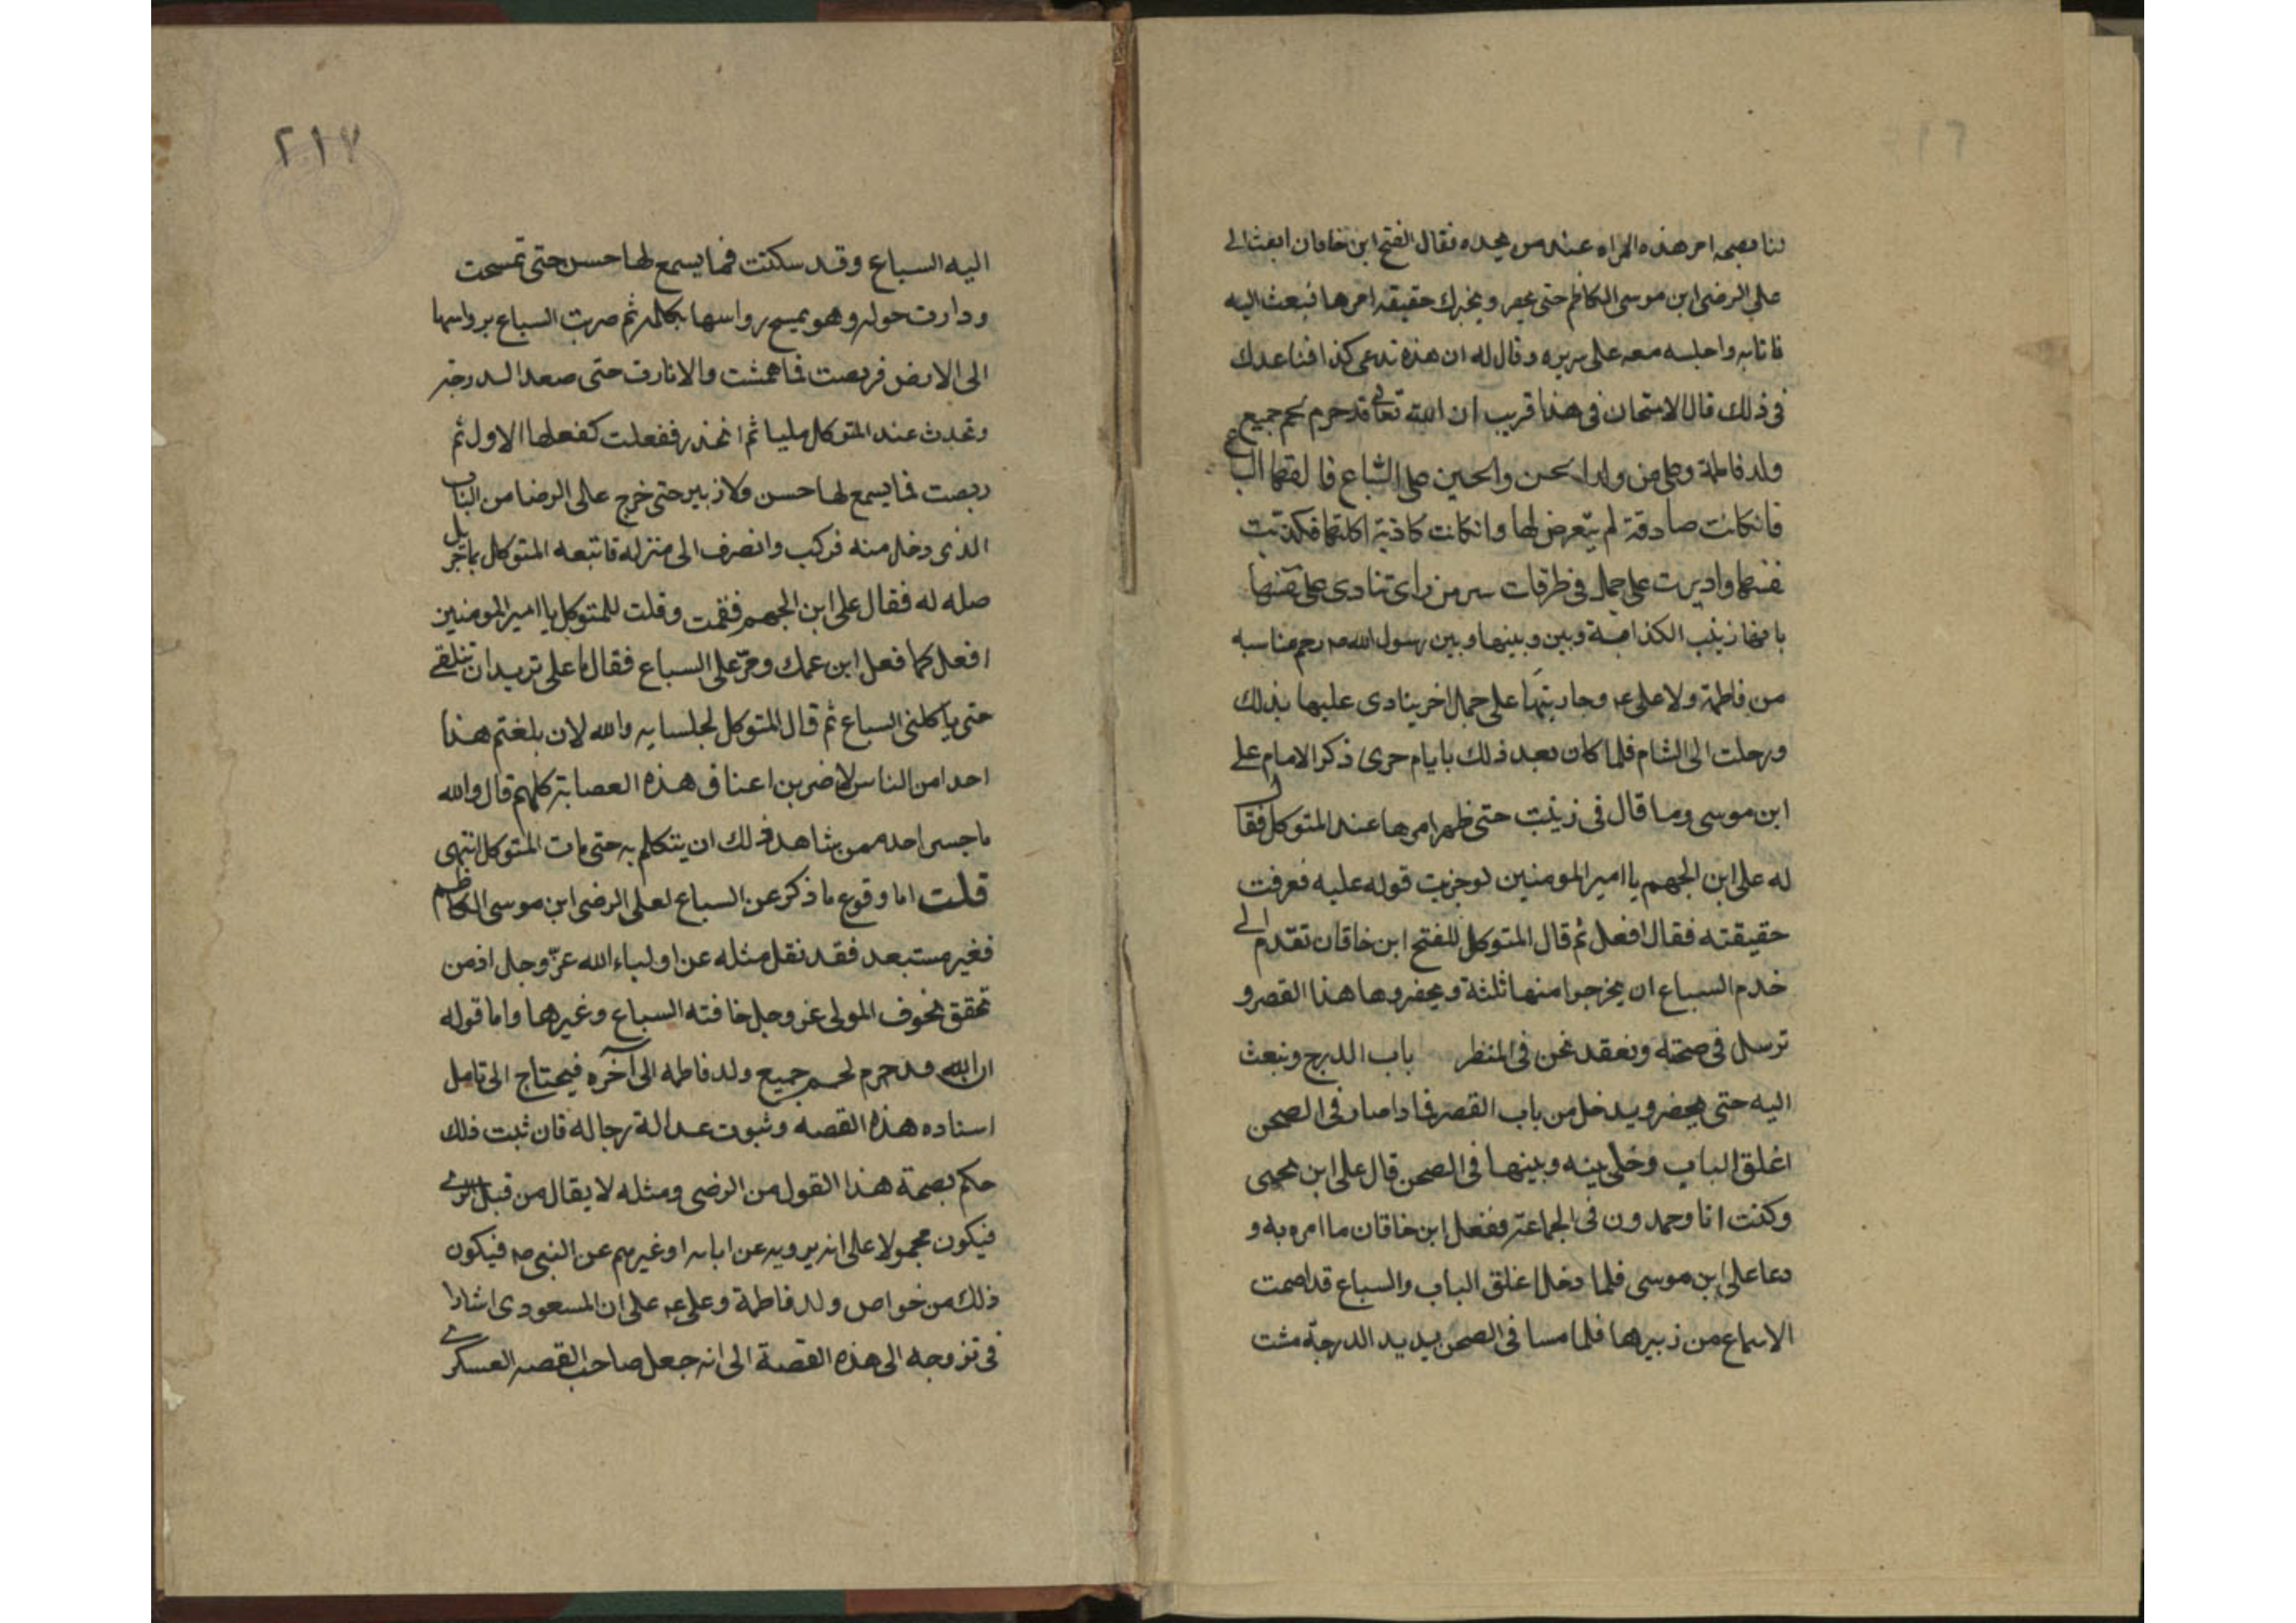 لنا بصحه امر هذه المراه عند من يجده فقال الفتح ابن خاقان ابعث الى
على الرضى ابن موسى الكاظم حتى يحضر ويخبرك حقيقه امرها فبعث اليه
فاتاه واجلسه معه على سريره وقال له ان هذه تدعى كذا فما عندك
فى ذلك قال الامتحان فى هذا قريب ان الله تعالى قد حرم لحم جميع
ولد فاطمة وعلى من ولد الحسن والحسين على السباع فالقها السباع
فان كانت صادقة لم يتعرض لها وان كانت كاذبة اكلتها فكذبت
نفسها واديرت على جمل فى طرقات سر من راى تنادى على نفسها
بانها زينب الكذابة وليس وبينها وبين رسول الله صم رحم مناسبه
من فاطمة ولا على عم وجاريتها على جمل اخر ينادى عليها بذلك
ورحلت الى الشام فلما كان بعد ذلك بايام جرى ذكر الامام على
ابن موسى وما قال فى زينب حتى ظهر امرها عند المتوكل فقال
له على ابن الجهم يا امير المومنين لو جربت قوله عليه فعرفت
حقيقته فقال افعل ثم قال المتوكل للفتح ابن خاقان تقدم الى
خدم السباع ان يخرجوا منها ثلثة ويحضروها هذا القصر و
ترسل فى صحنه ونعقد نحن فى المنظر باب الدرج ونبعث
اليه حتى يحضر ويدخل من باب القصر فاذا صار فى الصحن
اغلق الباب وخلى بينه وبينها فى الصحن قال على ابن يحيى
وكنت انا وحمدون فى الجماعة ففعل ابن خاقان ما امره به و
دعا على ابن موسى فلما دخل اغلق الباب والسباع قد اصمت
الاسماع من زبيرها فلما مسا فى الصحن يريد الدرجة مشت
٢١٧
اليه السباع وقد سكنت فما يسمع لها حسن حتى تمسحت
ودارت حوله وهو يمسح رواسها بكله ثم ضربت السباع برواسها
الى الارض فربصت فما همشت والا نارت حتى صعد الدرجة
وتحدث عند المتوكل مليا ثم انحدر ففعلت كفعلها الاول ثم
ربصت فما يسمع لها حسن ولا زبير حتى خرج على الرضا من الباب
الذى دخل منه فركب وانصرف الى منزله فاتبعه المتوكل بمال جزيل
صله له فقال على ابن الجهم فقمت وقلت للمتوكل يا امير المومنين
افعل كما فعل ابن عمك ومرّ على السباع فقال يا على تريد ان تلقى
حتى يأكلنى السباع ثم قال المتوكل لجلسايه والله لان بلغتم هذا
احدا من الناس لاضربن اعناق هذه العصابة كلهم قال والله
ما جسر احد ممن شاهد ذلك ان يتكلم به حتى مات المتوكل انتهى
قلت اما وقوع ما ذكر عن السباع لعلى الرضى ابن موسى الكاظم
فغير مستبعد فقد نقل مثله عن اولياء الله عزّ وجل اذ من
تحقق بخوف المولى عز وجل خافته السباع وغيرها واما قوله
ان الله قد حرم لحم جميع ولد فاطمه الى آخره فيحتاج الى تامل
اسناده هذه القصه وثبوت عدالة رجاله فان ثبت ذلك
حكم بصحة هذا القول من الرضى ومثله لا يقال من قبل الراى
فيكون محمولا على انه يرويه عن ابايه او غيرهم عن النبى صم فيكون
ذلك من خواص ولد فاطمة وعلى عم على ان المسعودى اشار
فى تزوجه الى هذه القصة الى انه جعل صاحب القصه العسكرى